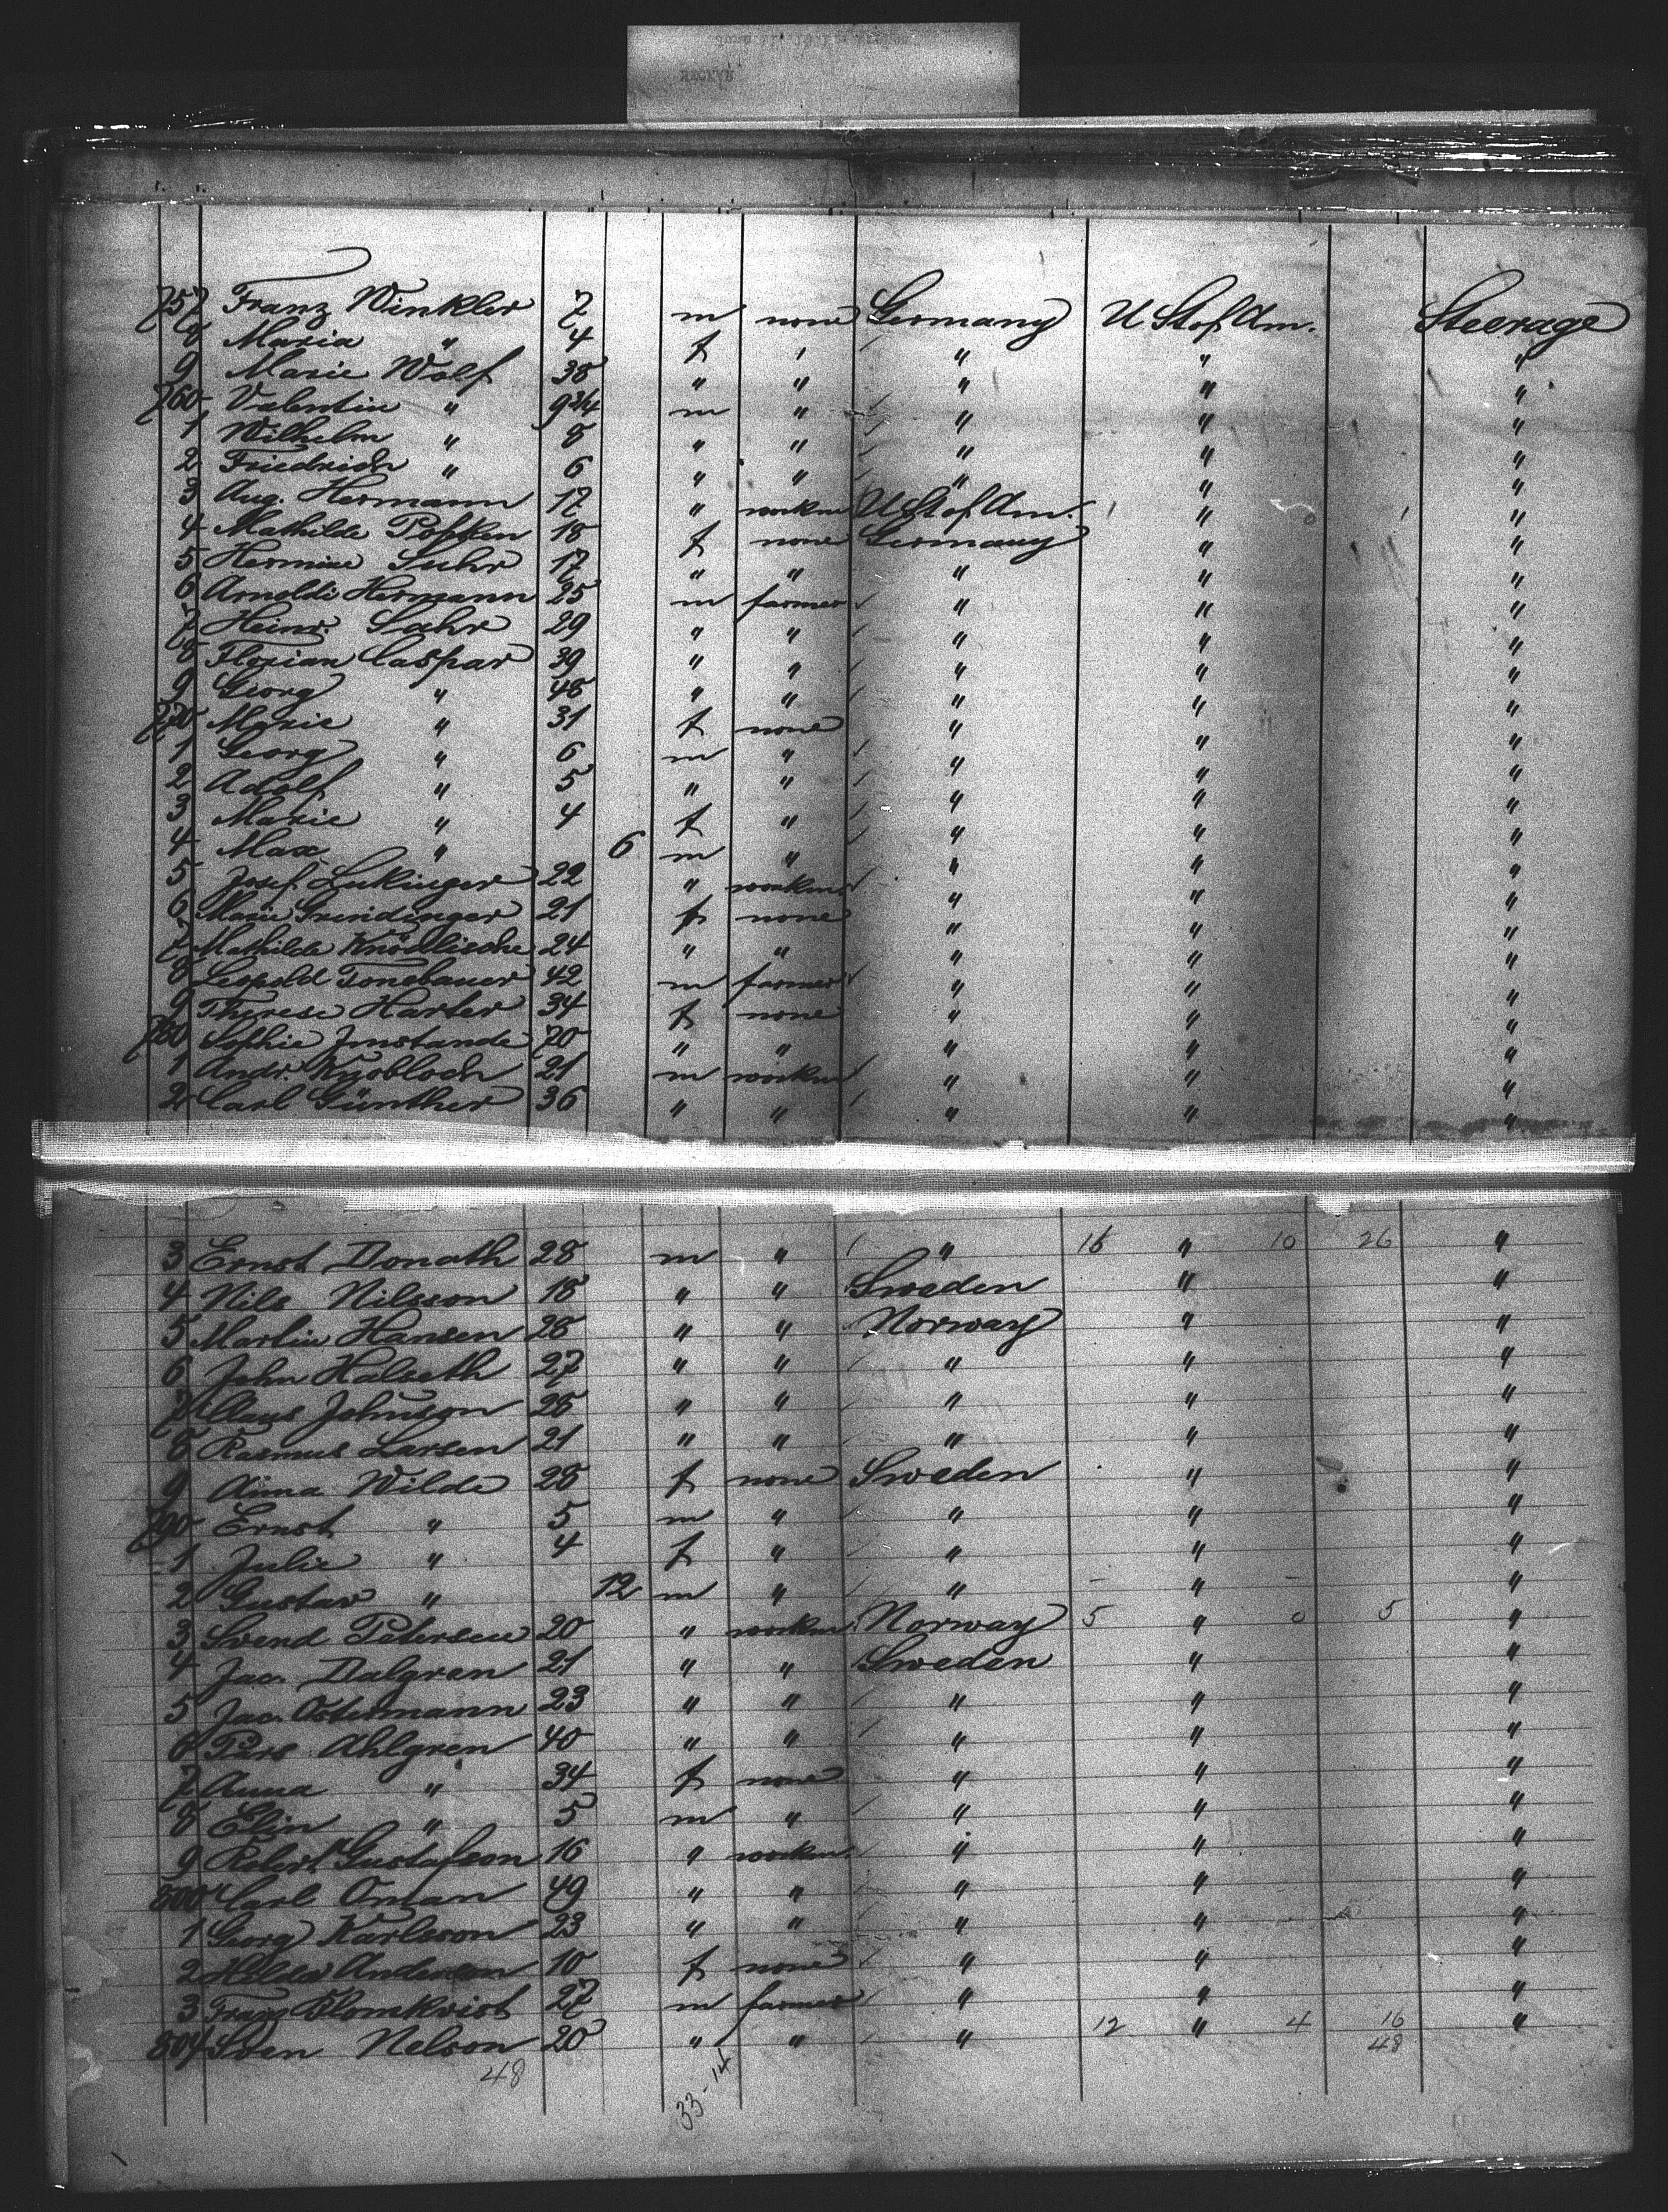 757 Franz Winkler 7 m none Germany U St of Am. Steerage
8 Maria " 4 f " " " "
9 Marie Wolf 38 " " " " "
760 Valentin " 9 3/4 m " " " "
1 Wilhelm " 8 " " " " "
2 Friedrich " 6 " " " " "
3 Aug. Hermann 17 " workm U St of Am. " "
4 Mathilde Popken 18 f none Germany " "
5 Hermine Suhr 17 " " " " "
6 Arnoldi Hermann 25 m farmer " " "
7 Heinr. Sahr 29 " " " " "
8 Florian Caspar 39 " " " " "
9 Georg " 48 " " " " "
770 Marie " 31 f none " " "
1 Georg " 6 m " " " "
2 Adolf " 5 " " " " "
3 Marie " 4 f " " " "
4 Max " 6 m " " " "
5 Josef Lukinger 22 " workm " " "
6 Marie Grendinger 21 f none " " "
7 Mathilde 24 " " " " "
8 Leopold Tonebauer 42 m farmer " " "
9 Therese Harter 34 f none " " "
780 Sophie Imstande 70 " " " " "
1 Andr. Knobloch 21 m workm " " "
2 Carl Günther 36 " " " " "
3 Ernst Donath 28 m " " 16 " 10 26 "
4 Nils Nilsson 18 " " Sweden " "
5 Martin Hansen 28 " " Norway " "
6 John Halseth 27 " " " " "
7 Claus Johnson 28 " " " " "
8 Rasmus Larsen 21 " " " " "
9 Anna Wilde 28 f none Sweden " "
790 Ernst " 5 m " " " "
1 Julie " 4 f " " " "
2 Gustav " 12 m " " - " - "
3 Svend Petersen 20 " workm Norway 5 " 0 5 "
4 Jac. Dalgren 21 " " Sweden " "
5 Jac. Ostermann 23 " " " " "
6 Pärs Ahlgren 40 " " " " "
7 Anna " 34 f none " " "
8 Elin " 5 m " " " "
9 Robert Gustafson 16 " workm " " "
800 Carl Oman 49 " " " " "
1 Georg Karlsson 23 " " " " "
2 Hilda Anderson 10 f none " " "
3 Franz Blomkvist 27 m farmer " " "
804 Sven Nelson 20 " " " 12 " 4 16 "
48
48
33-14